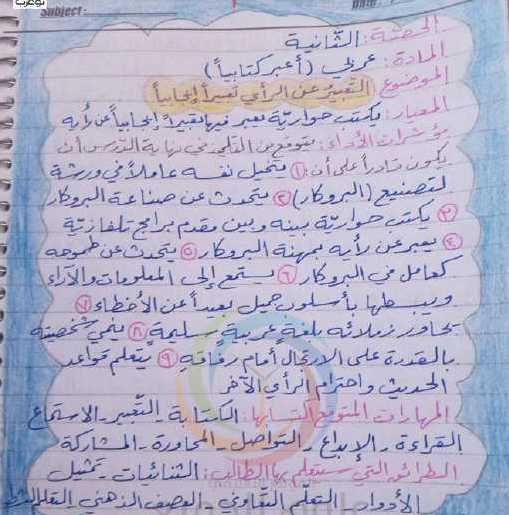 Subject:
الحصّة: الثّانية
المادة: عربي (أعبر كتابياً)
الموضوع: التعبير عن الرأي تعبيراً إيجابياً
المعيار: يكتب حواريّة يعبر فيها تعبيراً إيجابياً عن رأيه
مؤشرات الأداء: يتوقع من التلميذ في نهاية الدرس أن
يكون قادراً على أن: ① يتخيل نفسه عاملاً في ورشة
لتصنيع (البروكار) ② يتحدث عن صناعة البروكار
③ يكتب حواريّة بينه وبين مقدم برامج تلفازيّة
④ يعبر عن رأيه بمهنة البروكار ⑤ يتحدث عن طموحه
كعامل في البروكار ⑥ يستمع إلى المعلومات والآراء
ويبسطها بأسلوب جميل بعيداً عن الأخطاء ⑦
يحاور زملائه بلغةٍ عربيةٍ سليمةٍ ⑧ ينمي شخصيته
بالقدرة على الارتجال أمام رفاقه ⑨ يتعلم قواعد
الحديث واحترام الرأي الآخر
المهارات المتوقع اكتسابها: الكتابة - التعبير - الاستماع
القراءة - الإبداع - التواصل - المحاورة - المشاركة
الطرائق التي ستعلم بها الطالب: الثنائيات - تمثيل
الأدوار - التعلّم التعاوني - العصف الذهني